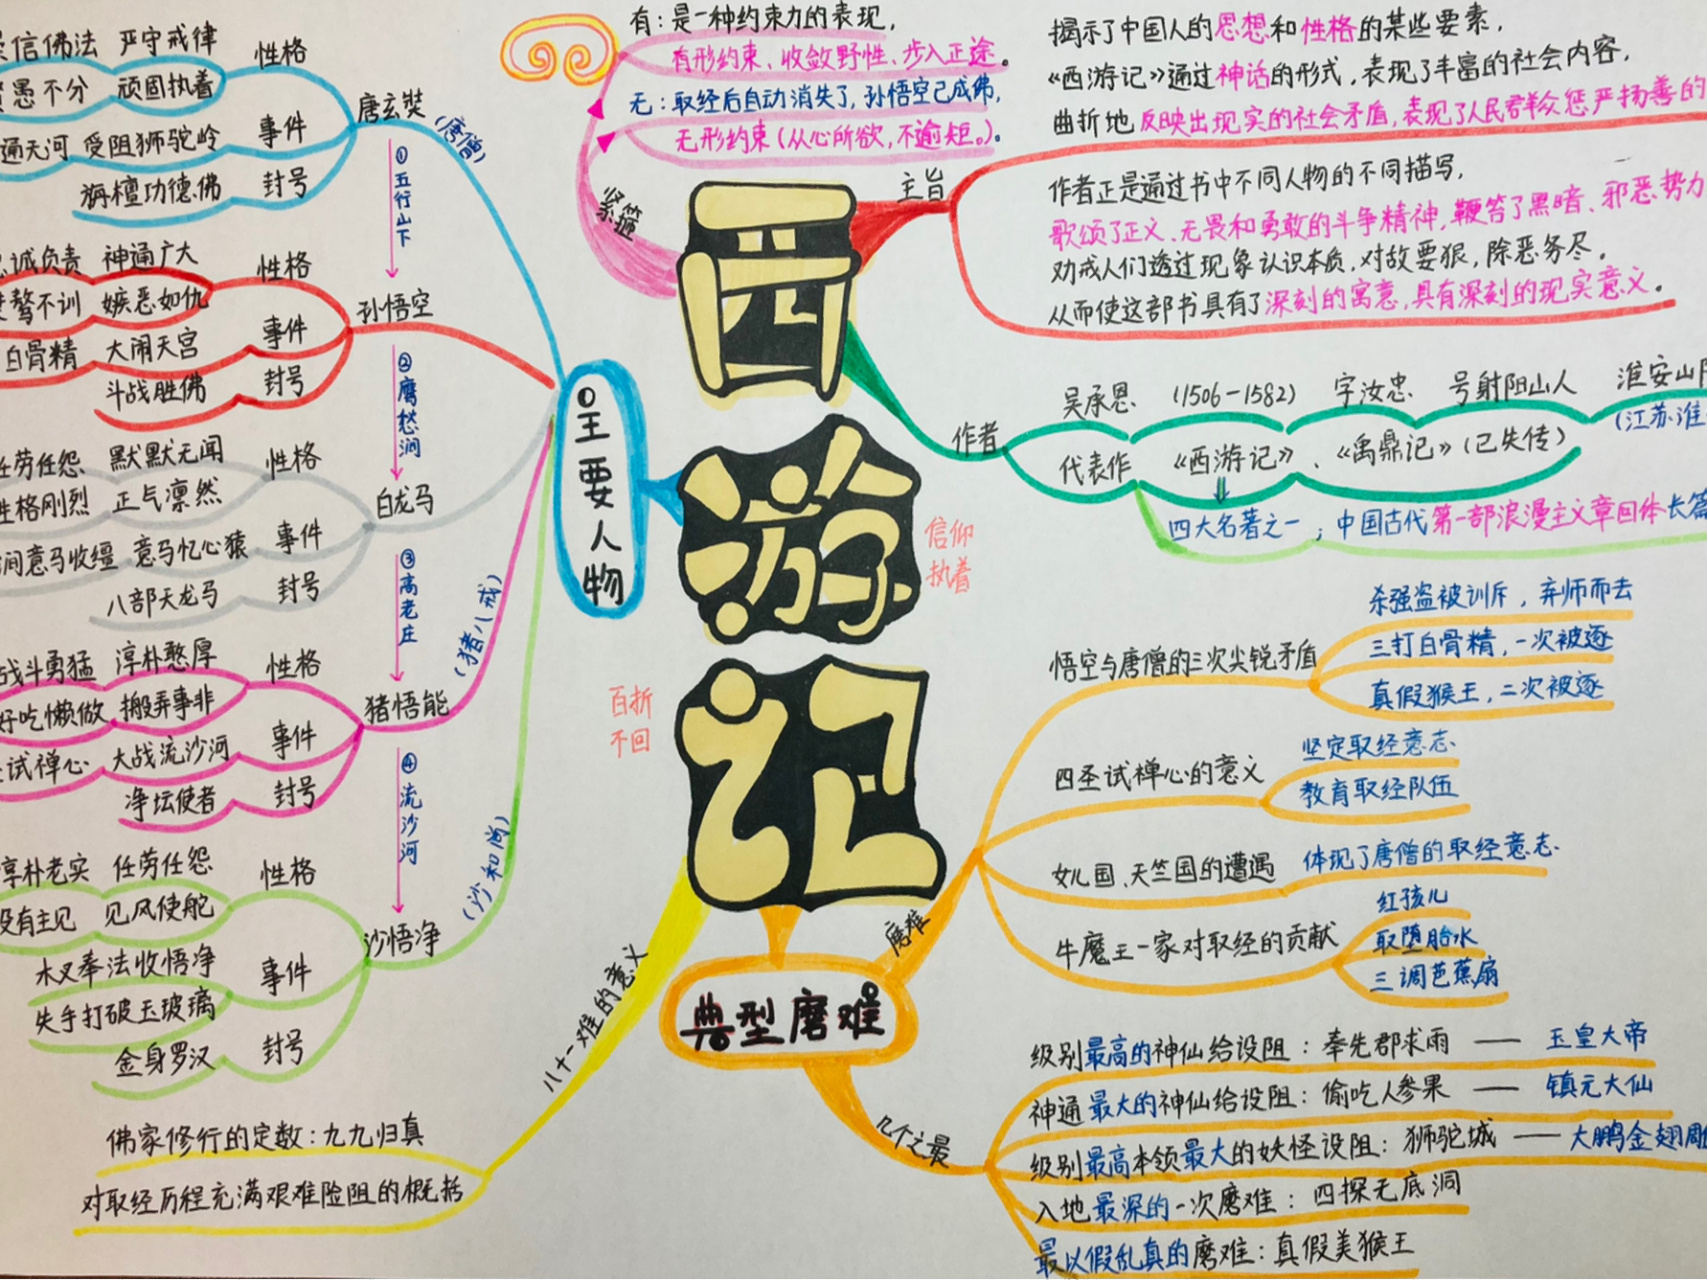 西游记
信仰
执着
百折
不回
紧箍
有：是一种约束力的表现，
有形约束、收敛野性、步入正途。
无：取经后自动消失了，孙悟空已成佛，
无形约束（从心所欲，不逾矩。）。
主旨
揭示了中国人的思想和性格的某些要素，
《西游记》通过神话的形式，表现了丰富的社会内容，
曲折地反映出现实的社会矛盾，表现了人民群众惩严扬善的
作者正是通过书中不同人物的不同描写，
歌颂了正义、无畏和勇敢的斗争精神，鞭笞了黑暗、邪恶势力
劝戒人们透过现象认识本质，对故要狠，除恶务尽。
从而使这部书具有了深刻的寓意，具有深刻的现实意义。
作者
吴承恩 （1506-1582） 字汝忠 号射阳山人 淮安山阳
（江苏淮
代表作 《西游记》、《禹鼎记》（已失传）
四大名著之一；中国古代第一部浪漫主义章回体长篇
主要人物
唐玄奘（唐僧）
性格
信佛法 严守戒律
愚不分 顽固执着
事件
通天河 受阻狮驼岭
封号
旃檀功德佛
①五行山下
孙悟空
性格
诚负责 神通广大
骜不训 嫉恶如仇
事件
白骨精 大闹天宫
封号
斗战胜佛
②鹰愁涧
白龙马
性格
任劳任怨 默默无闻
性格刚烈 正气凛然
事件
涧意马收缰 意马忆心猿
封号
八部天龙马
③高老庄
猪悟能（猪八戒）
性格
战斗勇猛 淳朴憨厚
好吃懒做 搬弄事非
事件
试禅心 大战流沙河
封号
净坛使者
④流沙河
沙悟净（沙和尚）
性格
淳朴老实 任劳任怨
没有主见 见风使舵
事件
木叉奉法收悟净
失手打破玉玻璃
封号
金身罗汉
八十一难的意义
佛家修行的定数：九九归真
对取经历程充满艰难险阻的概括
典型磨难
磨难
悟空与唐僧的三次尖锐矛盾
杀强盗被训斥，弃师而去
三打白骨精，一次被逐
真假猴王，二次被逐
四圣试禅心的意义
坚定取经意志
教育取经队伍
女儿国、天竺国的遭遇 体现了唐僧的取经意志
牛魔王一家对取经的贡献
红孩儿
取堕胎水
三调芭蕉扇
几个之最
级别最高的神仙给设阻：奉先郡求雨 —— 玉皇大帝
神通最大的神仙给设阻：偷吃人参果 —— 镇元大仙
级别最高本领最大的妖怪设阻：狮驼城 —— 大鹏金翅雕
入地最深的一次磨难：四探无底洞
最以假乱真的磨难：真假美猴王